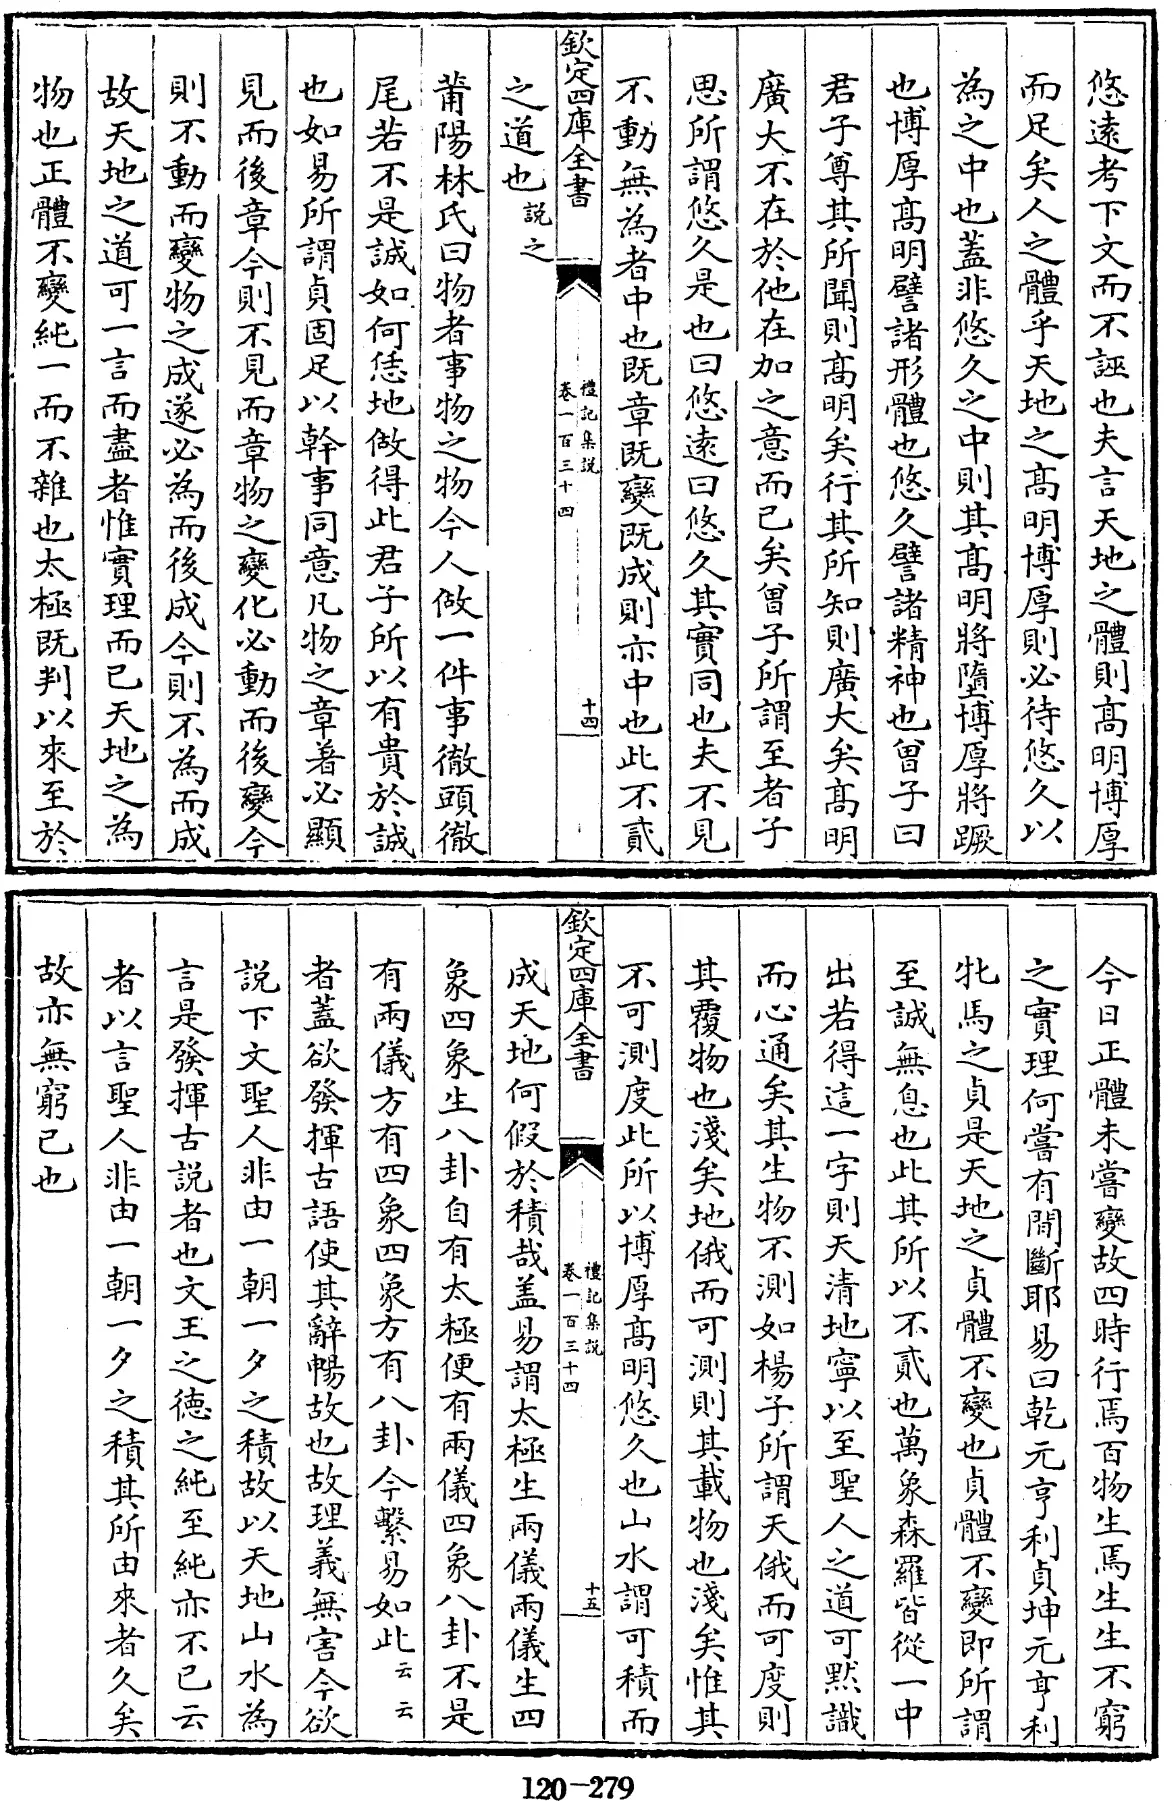 悠遠考下文而不誣也夫言天地之體則髙明博厚
而足矣人之體乎天地之髙明博厚則必待悠久以
為之中也蓋非悠久之中則其髙明將墮博厚將蹶
也博厚髙明譬諸形體也悠久譬諸精神也曾子曰
君子尊其所聞則髙明矣行其所知則廣大矣髙明
廣大不在於他在加之意而已矣曾子所謂至者子
思所謂悠久是也曰悠遠曰悠久其實同也夫不見
不動無為者中也既章既變既成則亦中也此不貳
欽定四庫全書
禮記集説
卷一百三十四
十四
之道也説之
莆陽林氏曰物者事物之物今人做一件事徹頭徹
尾若不是誠如何恁地做得此君子所以有貴於誠
也如易所謂貞固足以幹事同意凡物之章著必顯
見而後章今則不見而章物之變化必動而後變今
則不動而變物之成遂必為而後成今則不為而成
故天地之道可一言而盡者惟實理而已天地之為
物也正體不變純一而不雜也太極既判以來至於
今日正體未嘗變故四時行焉百物生焉生生不窮
之實理何嘗有間斷耶易曰乾元亨利貞坤元亨利
牝馬之貞是天地之貞體不變也貞體不變即所謂
至誠無息也此其所以不貳也萬象森羅皆從一中
出若得這一字則天清地寧以至聖人之道可黙識
而心通矣其生物不測如楊子所謂天俄而可度則
其覆物也淺矣地俄而可測則其載物也淺矣惟其
不可測度此所以博厚髙明悠久也山水謂可積而
欽定四庫全書
禮記集説
卷一百三十四
十五
成天地何假於積哉盖易謂太極生兩儀兩儀生四
象四象生八卦自有太極便有兩儀四象八卦不是
有兩儀方有四象四象方有八卦今繫易如此云云
者蓋欲發揮古語使其辭暢故也故理義無害今欲
説下文聖人非由一朝一夕之積故以天地山水為
言是發揮古説者也文王之徳之純至純亦不已云
者以言聖人非由一朝一夕之積其所由來者久矣
故亦無窮已也
120-279